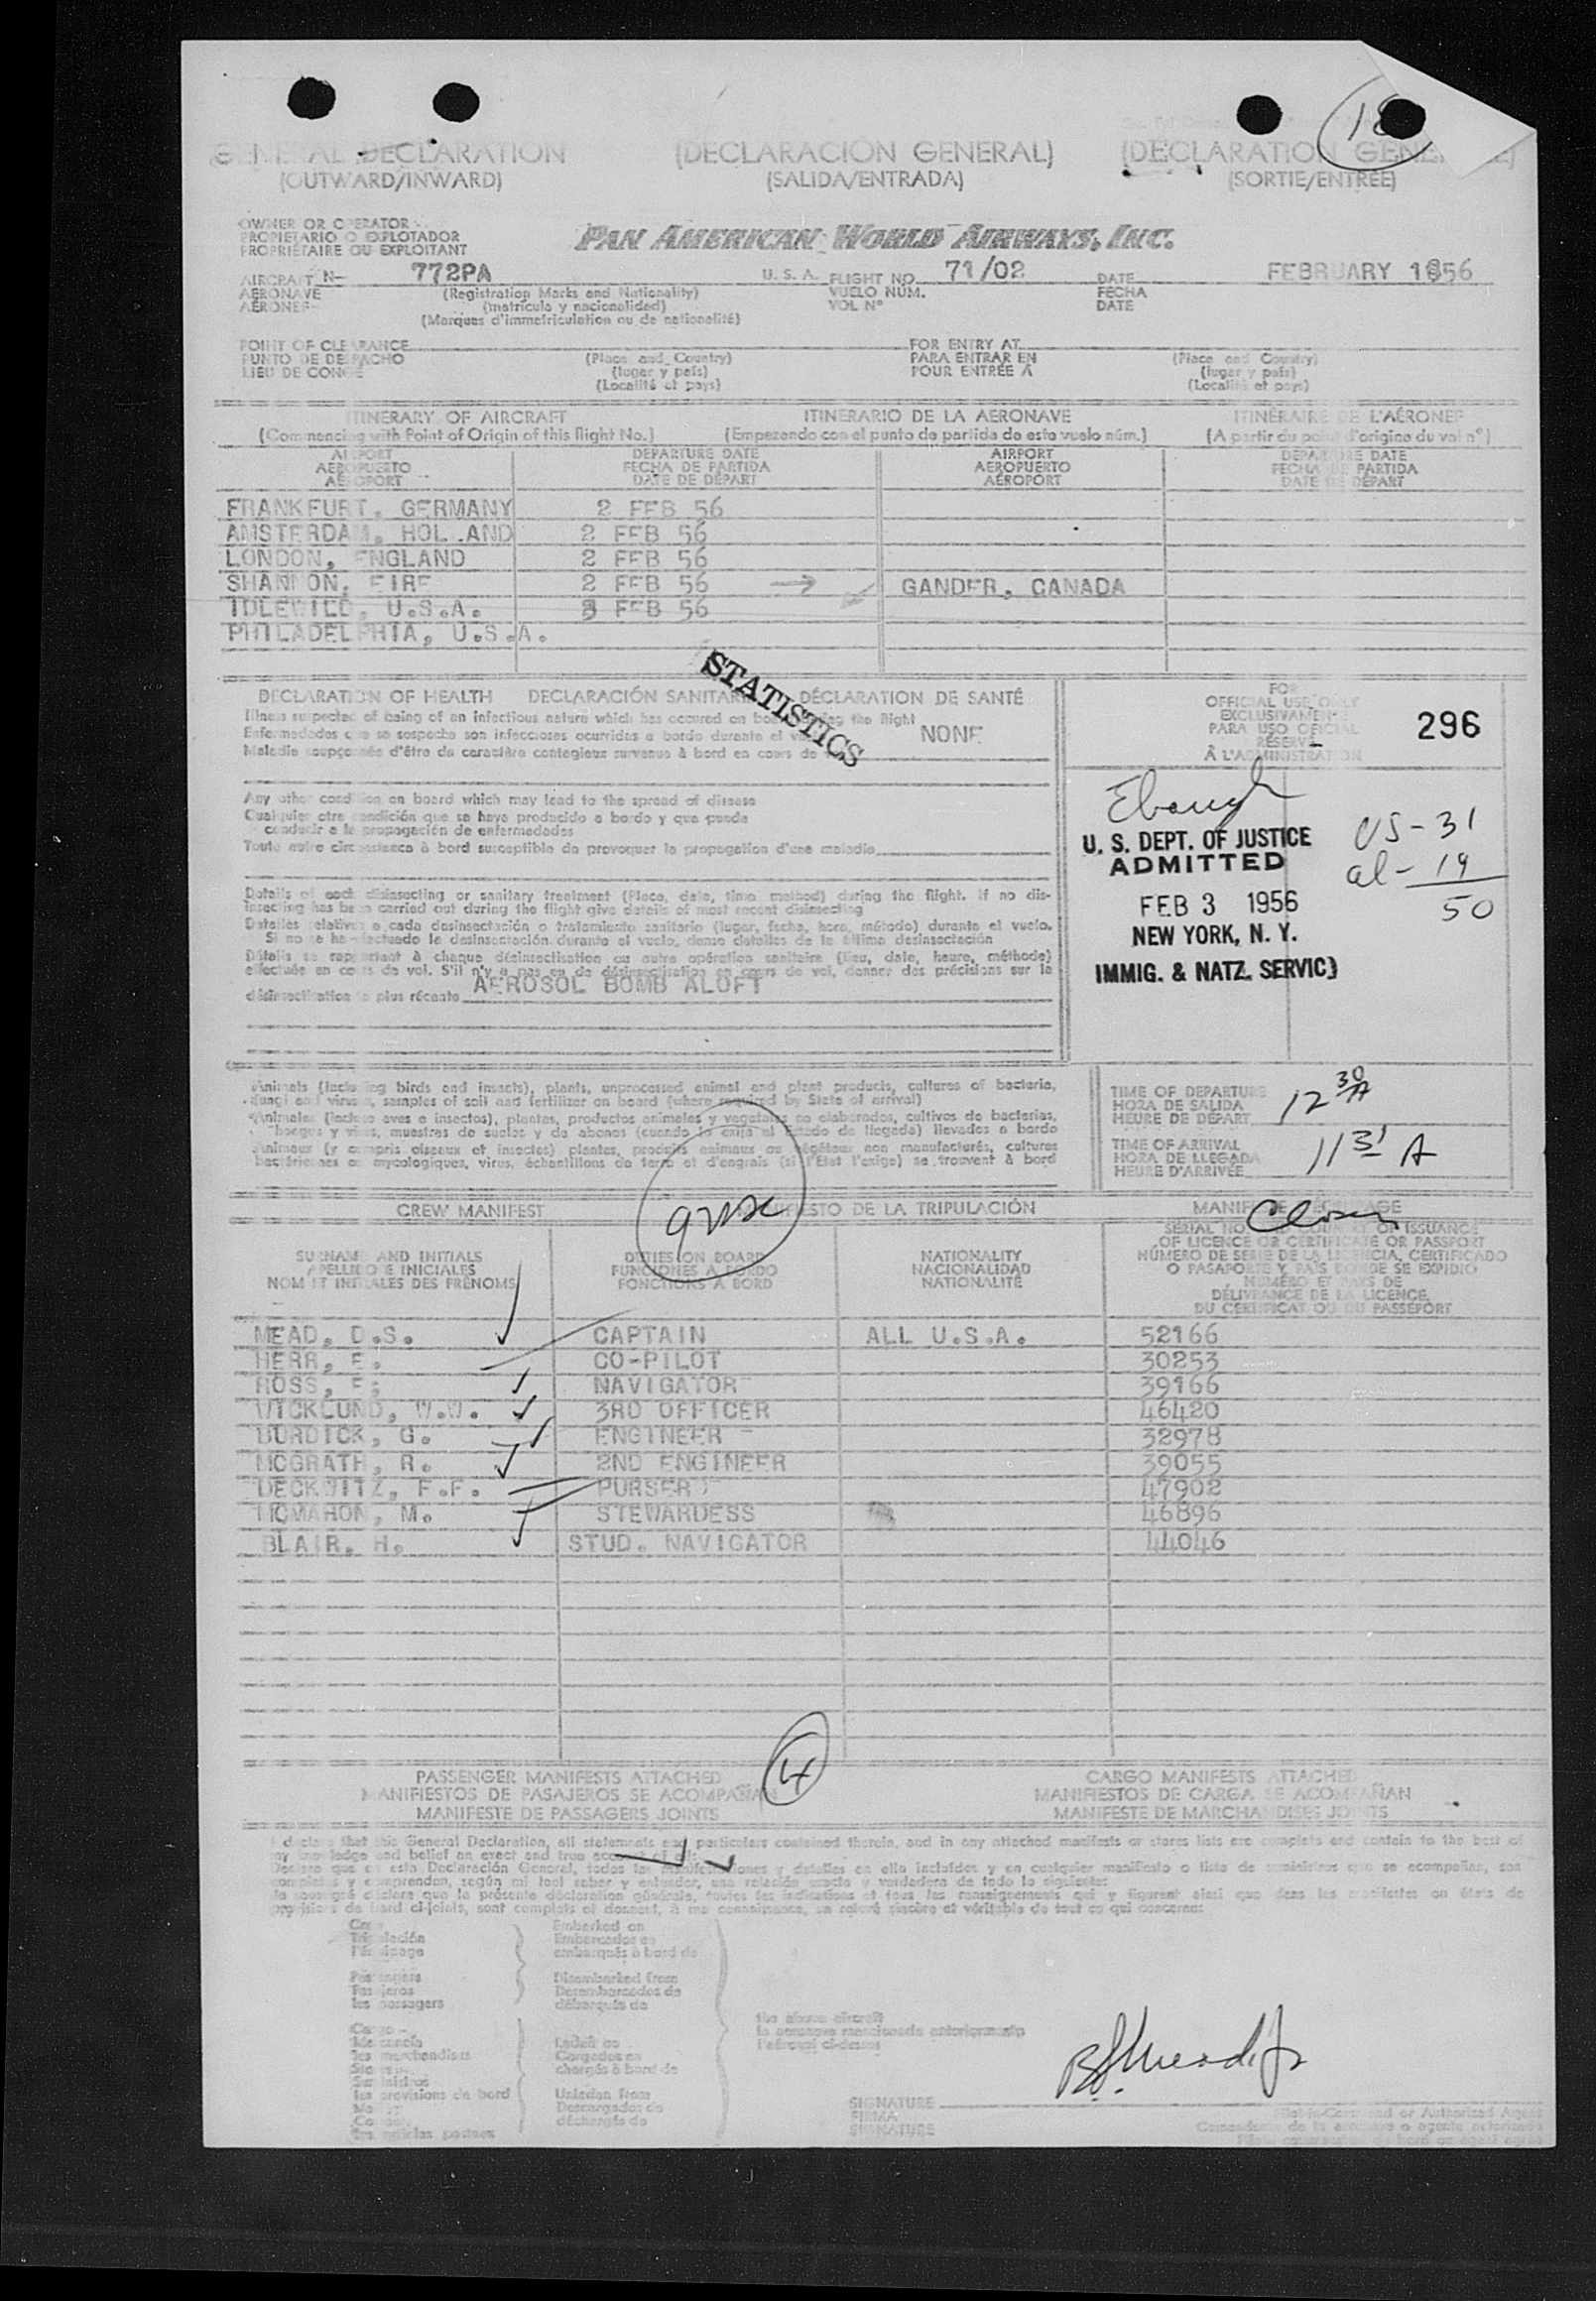 18
GENERAL DECLARATION (DECLARACIÓN GENERAL) (DÉCLARATION GÉNÉRALE)
(OUTWARD/INWARD) (SALIDA/ENTRADA) (SORTIE/ENTRÉE)
OWNER OR OPERATOR
PROPIETARIO O EXPLOTADOR
PROPRIÉTAIRE OU EXPLOITANT
PAN AMERICAN WORLD AIRWAYS, INC.
AIRCRAFT N- 772PA U. S. A. FLIGHT NO. 71/02 DATE FEBRUARY 1956
AERONAVE (Registration Marks and Nationality) VUELO NÚM. FECHA
AÉRONEF (matrícula y nacionalidad) VOL Nº DATE
(Marques d'immatriculation ou de nationalité)
POINT OF CLEARANCE FOR ENTRY AT
PUNTO DE DESPACHO (Place and Country) PARA ENTRAR EN (Place and Country)
LIEU DE CONGÉ (lugar y país) POUR ENTRÉE À (lugar y país)
(Localité et pays) (Localité et pays)
ITINERARY OF AIRCRAFT ITINERARIO DE LA AERONAVE ITINÉRAIRE DE L'AÉRONEF
(Commencing with Point of Origin of this flight No.) (Empezando con el punto de partida de este vuelo núm.) (A partir du point d'origine du vol nº)
AIRPORT DEPARTURE DATE AIRPORT DEPARTURE DATE
AEROPUERTO FECHA DE PARTIDA AEROPUERTO FECHA DE PARTIDA
AÉROPORT DATE DE DÉPART AÉROPORT DATE DE DÉPART
FRANKFURT, GERMANY 2 FEB 56
AMSTERDAM, HOLLAND 2 FEB 56
LONDON, ENGLAND 2 FEB 56
SHANNON, EIRE 2 FEB 56 → GANDER, CANADA
IDLEWILD, U.S.A. 3 FEB 56
PHILADELPHIA, U.S.A.
STATISTICS
DECLARATION OF HEALTH DECLARACIÓN SANITARIA DÉCLARATION DE SANTÉ
Illness suspected of being of an infectious nature which has occured on board during the flight
Enfermedades que se sospecha son infecciosas ocurridas a bordo durante el vuelo NONE
Maladie soupçonnée d'être de caractère contagieux survenue à bord en cours de
FOR
OFFICIAL USE ONLY
EXCLUSIVAMENTE
PARA USO OFICIAL
RÉSERVÉ
À L'ADMINISTRATION
296
Any other condition on board which may lead to the spread of disease
Cualquier otra condición que se haya producido a bordo y que pueda
conducir a la propagación de enfermedades
Toute autre circonstance à bord susceptible de provoquer la propagation d'une maladie
Ebaugh
U. S. DEPT. OF JUSTICE
ADMITTED
FEB 3 1956
NEW YORK, N. Y.
IMMIG. & NATZ. SERVIC
US - 31
al - 19
50
Details of each disinsecting or sanitary treatment (Place, date, time method) during the flight. If no dis-
insecting has been carried out during the flight give details of most recent disinsecting
Detalles relativos a cada desinsectación o tratamiento sanitario (lugar, fecha, hora, método) durante el vuelo.
Si no se ha efectuado la desinsectación durante el vuelo, dense detalles de la última desinsectación
Détails se rapportant à chaque désinsectisation ou autre opération sanitaire (lieu, date, heure, méthode)
effectuée en cours de vol. S'il n'y a pas eu de désinsectisation en cours de vol, donner des précisions sur la
désinsectisation la plus récente AEROSOL BOMB ALOFT
Animals (including birds and insects), plants, unprocessed animal and plant products, cultures of bacteria,
fungi and viruses, samples of soil and fertilizer on board (where required by State of arrival)
Animales (incluso aves e insectos), plantas, productos animales y vegetales no elaborados, cultivos de bacterias,
hongos y virus, muestras de suelos y de abonos (cuando lo exija el Estado de llegada) llevados a bordo
Animaux (y compris oiseaux et insectes) plantes, produits animaux ou végétaux non manufacturés, cultures
bactériennes ou mycologiques, virus, échantillons de terre et d'engrais (si l'État l'exige) se trouvant à bord
TIME OF DEPARTURE
HORA DE SALIDA
HEURE DE DÉPART 12 30 A
TIME OF ARRIVAL
HORA DE LLEGADA
HEURE D'ARRIVÉE 11 31 A
CREW MANIFEST MANIFIESTO DE LA TRIPULACIÓN MANIFESTE D'ÉQUIPAGE
SURNAME AND INITIALS DUTIES ON BOARD NATIONALITY
APELLIDO E INICIALES FUNCIONES A BORDO NACIONALIDAD
NOM ET INITIALES DES PRÉNOMS FONCTIONS À BORD NATIONALITÉ
SERIAL NO. ISSUANCE
OF LICENCE OR CERTIFICATE OR PASSPORT
NÚMERO DE SERIE DE LA LICENCIA, CERTIFICADO
O PASAPORTE Y PAÍS DONDE SE EXPIDIÓ
NUMÉRO ET PAYS DE
DÉLIVRANCE DE LA LICENCE,
DU CERTIFICAT OU DU PASSEPORT
MEAD, D.S. CAPTAIN ALL U.S.A. 52166
HERR, E. CO-PILOT 30253
ROSS, F. NAVIGATOR 39166
WICKLUND, W.W. 3RD OFFICER 46420
BURDICK, G. ENGINEER 32978
MCGRATH, R. 2ND ENGINEER 39055
DECKWITZ, F.F. PURSER 47902
MCMAHON, M. STEWARDESS 46896
BLAIR, H. STUD. NAVIGATOR 44046
4
PASSENGER MANIFESTS ATTACHED CARGO MANIFESTS ATTACHED
MANIFIESTOS DE PASAJEROS SE ACOMPAÑAN MANIFIESTOS DE CARGA SE ACOMPAÑAN
MANIFESTE DE PASSAGERS JOINTS MANIFESTE DE MARCHANDISES JOINTS
I declare that this General Declaration, all statements and particulars contained therein, and in any attached manifests or stores lists are complete and contain to the best of
my knowledge and belief an exact and true account of all
Declaro que en esta Declaración General, todos las manifestaciones y detalles en ella incluidos y en cualquier manifiesto o lista de suministros que se acompañan, son
completos y comprenden, según mi leal saber y entender, una relación exacta y verdadera de todo lo siguiente:
Je soussigné déclare que la présente déclaration générale, toutes les indications et tous les renseignements qui y figurent ainsi que dans les manifestes ou états de
provisions de bord ci-joints, sont complets et donnent, à ma connaissance, un relevé sincère et véritable de tout ce qui concerne:
Crew Embarked on
Tripulación Embarcados en
l'équipage embarqués à bord de
Passengers Disembarked from
Pasajeros Desembarcados de
les passagers débarqués de
the above aircraft
la aeronave mencionada anteriormente
l'aéronef ci-dessus
Cargo
Mercancía Laden on
les marchandises Cargados en
Stores chargés à bord de
Suministros
les provisions de bord Unladen from
Descargados de
déchargés de
les articles postaux
SIGNATURE
FIRMA
SIGNATURE
Pilot-in-Command or Authorized Agent
Comandante de la aeronave o agente autorizado